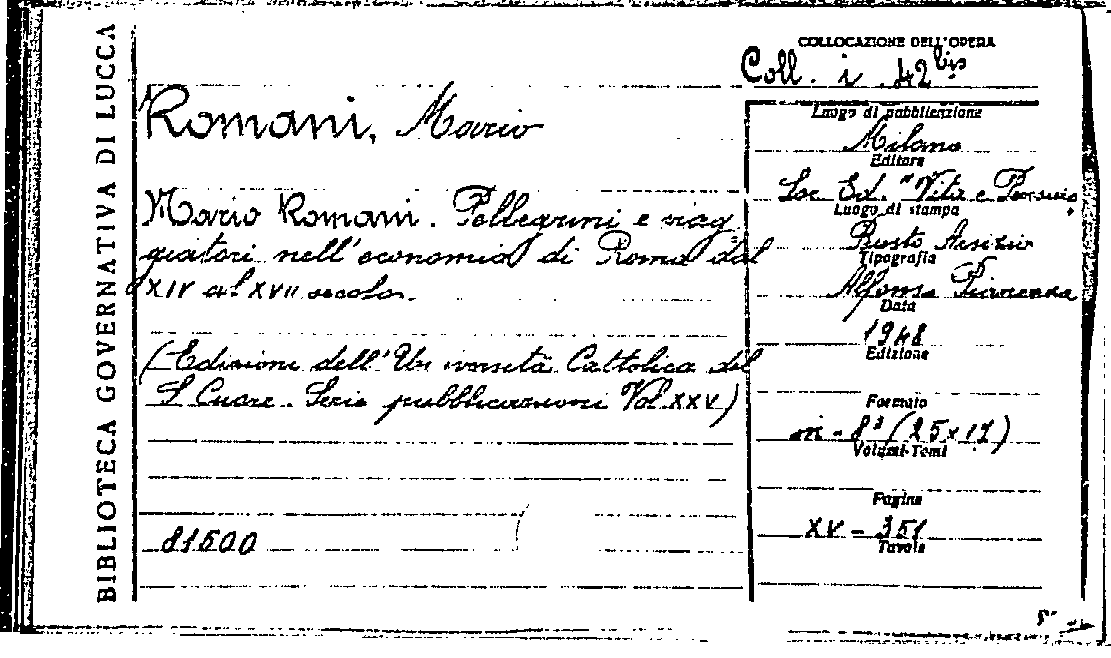 BIBLIOTECA GOVERNATIVA DI LUCCA
COLLOCAZIONE DELL'OPERA
Coll. i. 42 bis
Romani, Mario
Mario Romani. Pellegrini e viag-
giatori nell'economia di Roma dal
XIV al XVII secolo.
(Edizione dell'Università Cattolica del
S. Cuore. Serie pubblicazioni Vol. XXV)
81500
Luogo di pubblicazione
Milano
Editore
Soc. Ed. "Vita e Pensiero
Luogo di stampa
Busto Arsizio
Tipografia
Alfonso Pianezza
Data
1948
Edizione
Formato
in-8° (25x17)
Volumi-Tomi
Pagine
XV - 351
Tavole